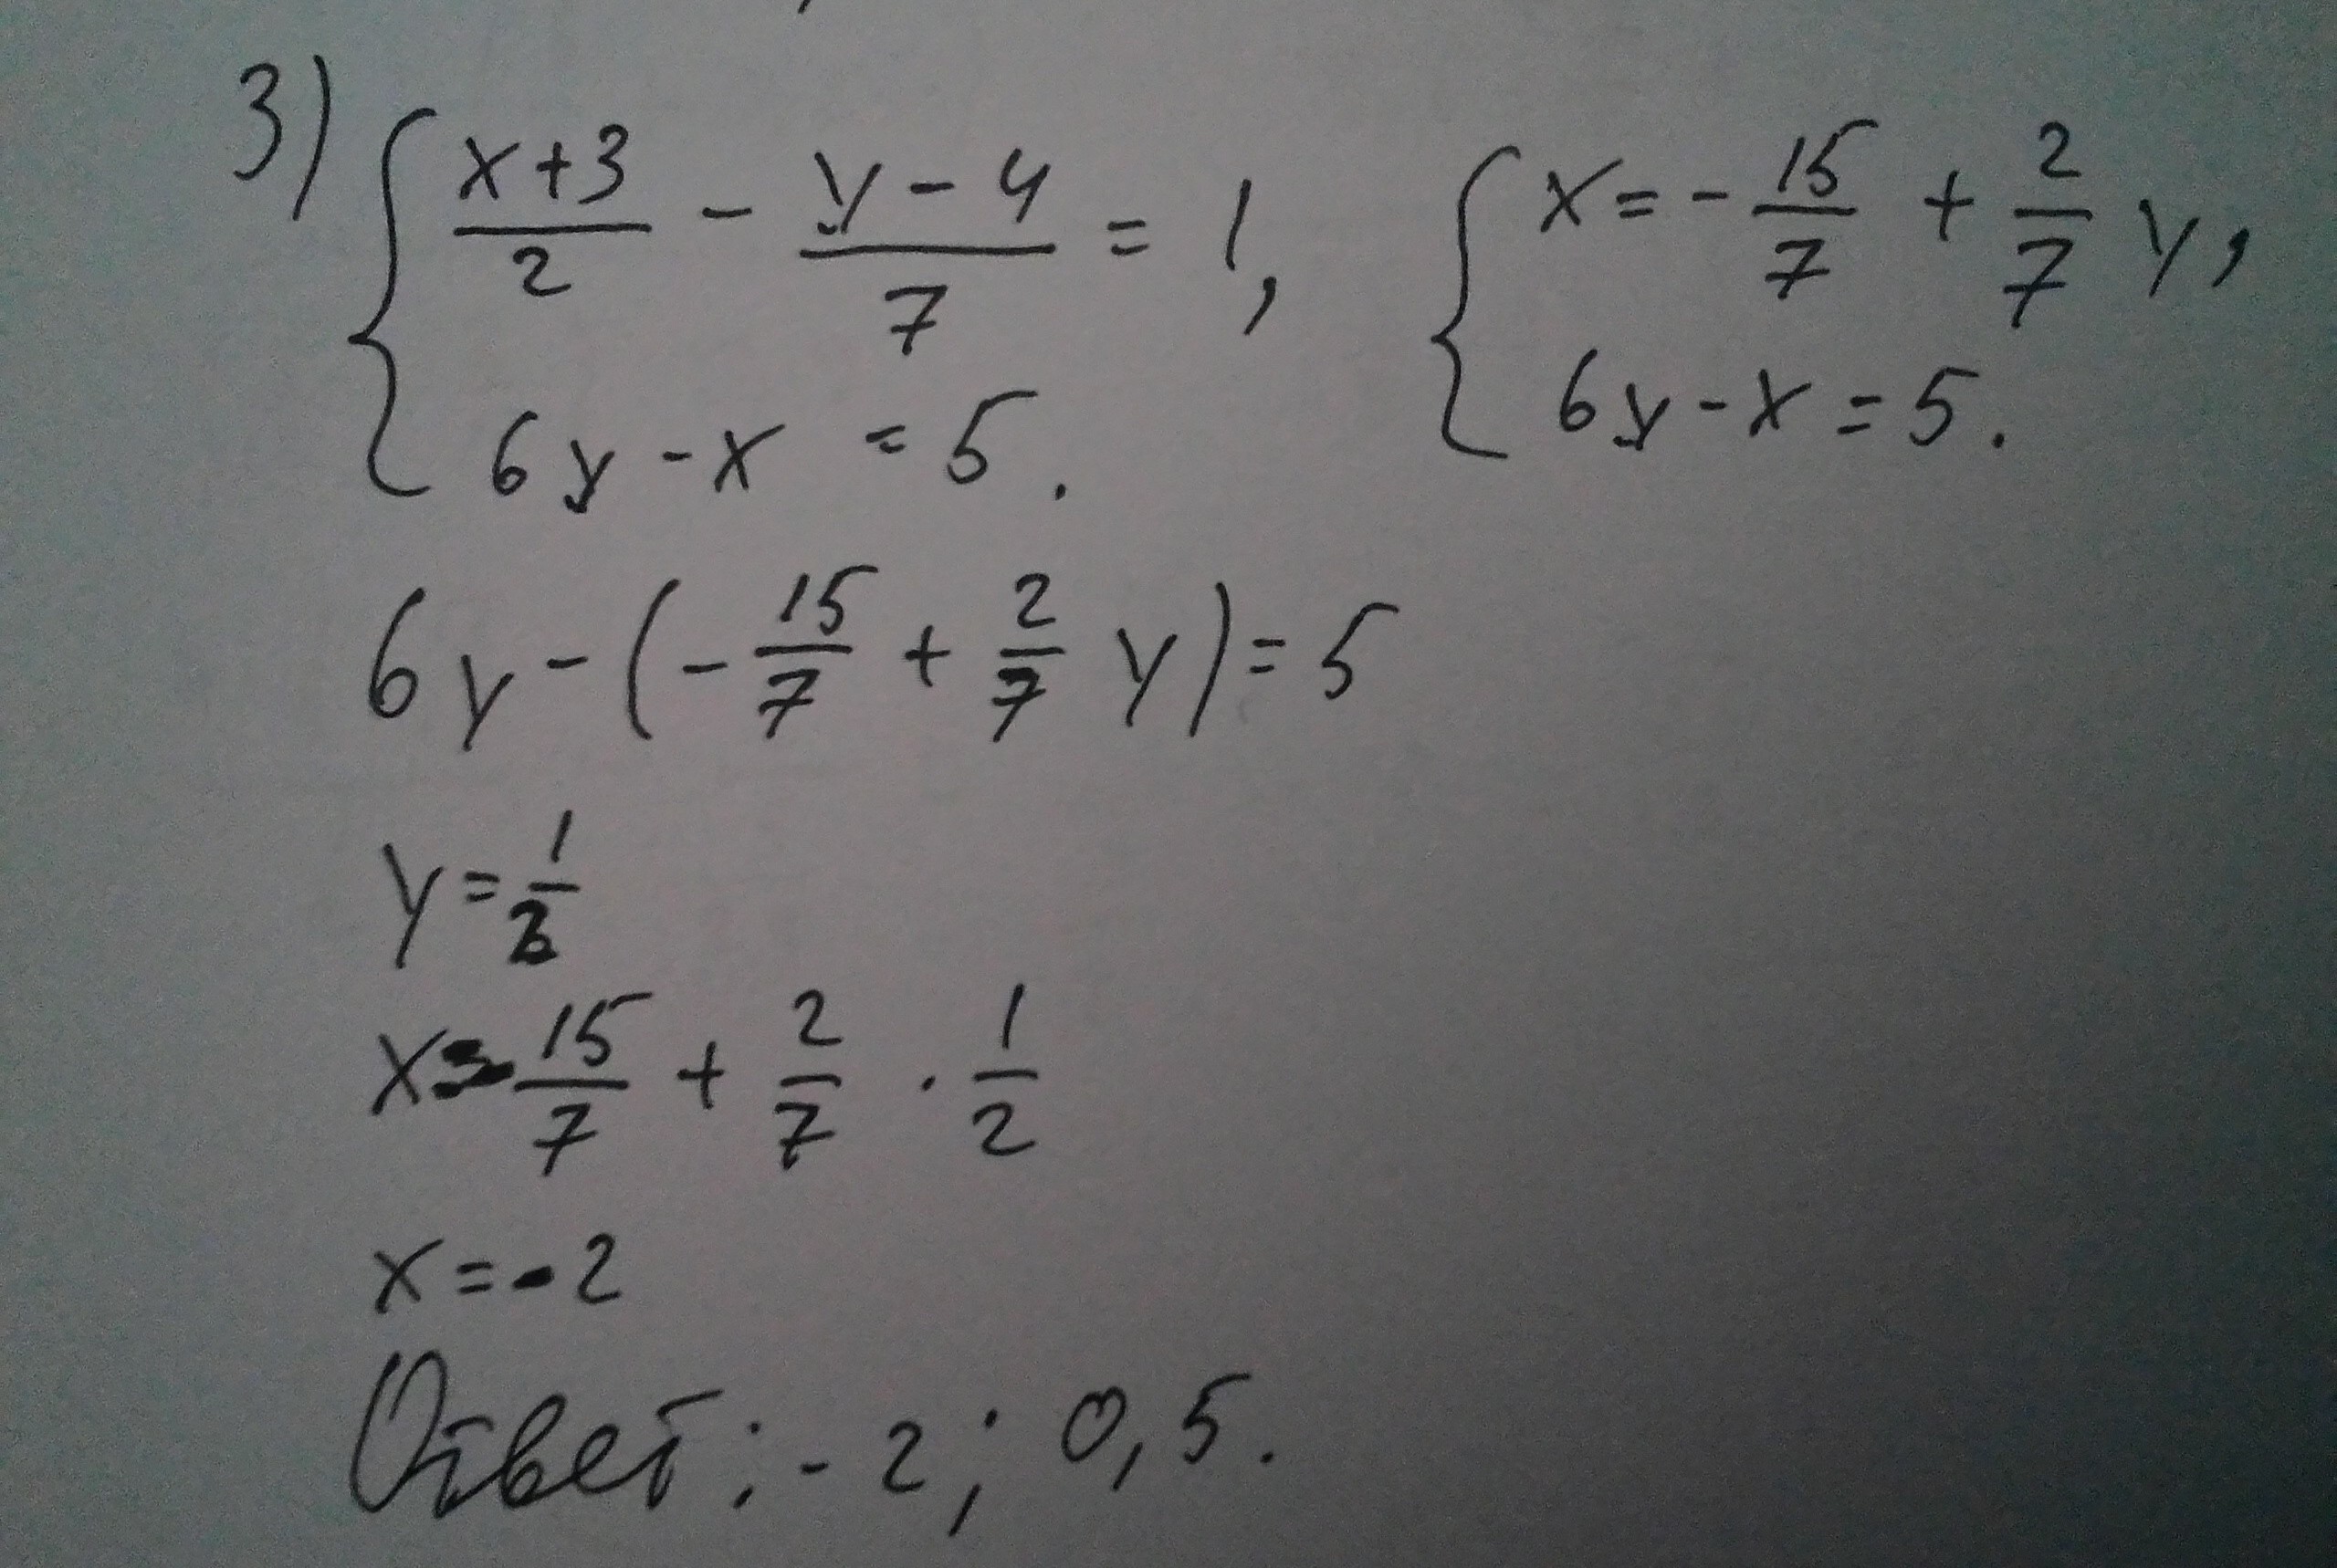 3) { (x+3)/2 - (y-4)/7 = 1, { x = -15/7 + 2/7 y,
6y - x = 5. 6y - x = 5.
6y - (-15/7 + 2/7 y) = 5
y = 1/2
x = -15/7 + 2/7 · 1/2
x = -2
Ответ: -2; 0,5.